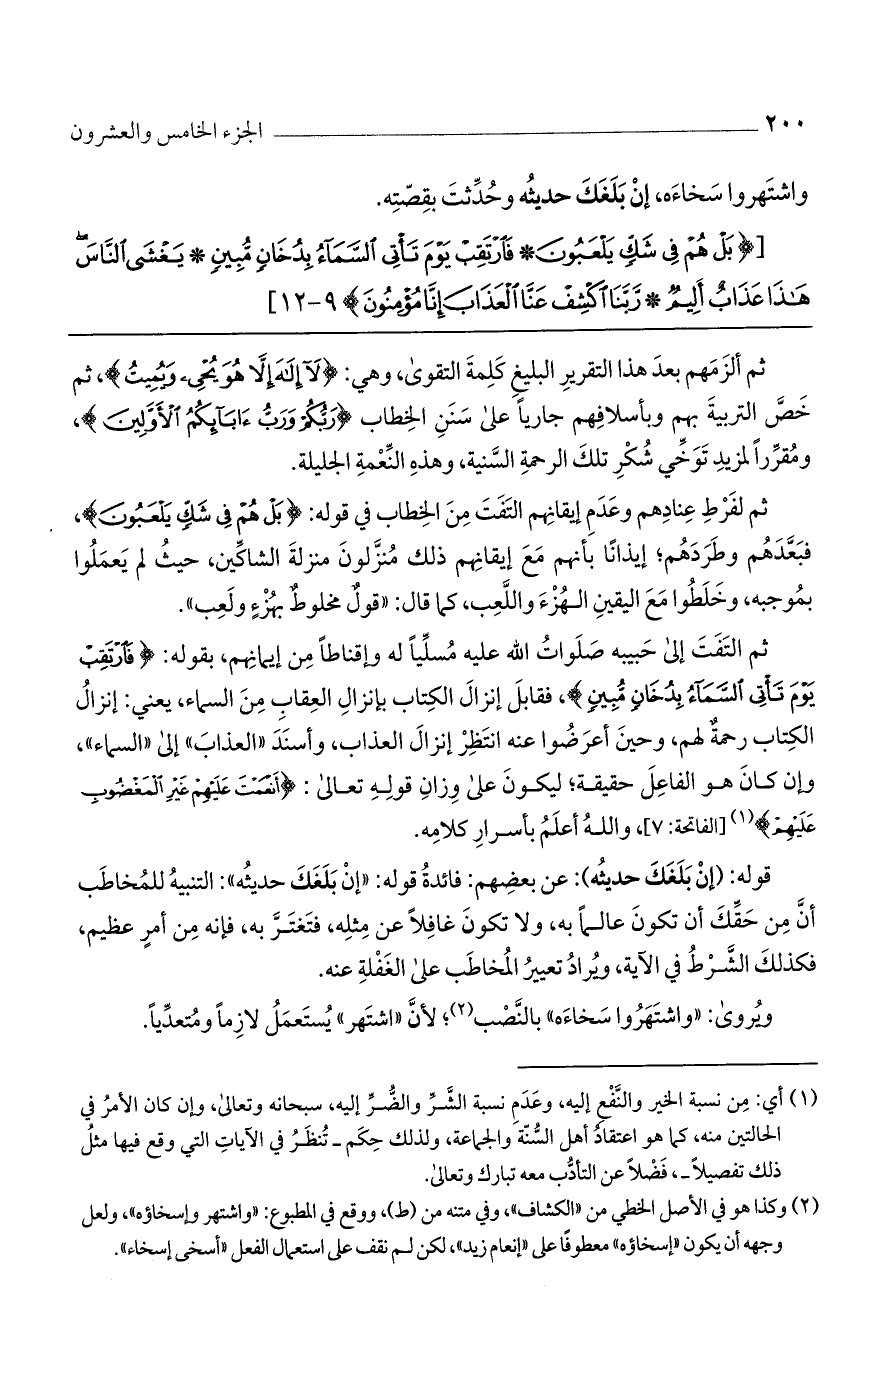 ٢٠٠ الجزء الخامس والعشرون
واشتَهروا سَخاءَه، إنْ بَلَغَكَ حديثُه وحُدِّثتَ بقِصّتِه.
[﴿بَلْ هُمْ فِى شَكٍّ يَلْعَبُونَ * فَٱرْتَقِبْ يَوْمَ تَأْتِى ٱلسَّمَآءُ بِدُخَانٍ مُّبِينٍ * يَغْشَى ٱلنَّاسَ ۖ
هَـٰذَا عَذَابٌ أَلِيمٌ * رَّبَّنَا ٱكْشِفْ عَنَّا ٱلْعَذَابَ إِنَّا مُؤْمِنُونَ﴾ ٩-١٢]
ثم ألزَمَهم بعدَ هذا التقريرِ البليغِ كَلِمةَ التقوىٰ، وهي: ﴿لَآ إِلَـٰهَ إِلَّا هُوَ يُحْىِۦ وَيُمِيتُ﴾، ثم
خَصَّ التربيةَ بهم وبأسلافِهم جارياً علىٰ سَنَنِ الخِطاب ﴿رَبُّكُمْ وَرَبُّ ءَابَآئِكُمُ ٱلْأَوَّلِينَ﴾،
ومُقرِّراً لمزيدِ تَوَخِّي شُكْرِ تلكَ الرحمةِ السَّنية، وهذهِ النِّعْمةِ الجليلة.
ثم لفَرْطِ عِنادِهم وعَدَمِ إيقانِهم التَفَتَ مِنَ الخِطاب في قوله: ﴿بَلْ هُمْ فِى شَكٍّ يَلْعَبُونَ﴾،
فبَعَّدَهُم وطَرَدَهُم؛ إيذانًا بأنهم مَعَ إيقانِهم ذلك مُنزَّلونَ منزلةَ الشاكِّين، حيثُ لم يَعمَلُوا
بمُوجبِه، وخَلَطُوا مَعَ اليقينِ الهُزْءَ واللَّعِب، كما قال: «قولٌ مخلوطٌ بهُزْءٍ ولَعِب».
ثم التَفَتَ إلىٰ حَبيبه صَلَواتُ الله عليه مُسلِّياً له وإقناطاً مِن إيمانِهم، بقوله: ﴿فَٱرْتَقِبْ
يَوْمَ تَأْتِى ٱلسَّمَآءُ بِدُخَانٍ مُّبِينٍ﴾، فقابلَ إنزالَ الكِتاب بإنزالِ العِقابِ مِنَ السماء، يعني: إنزالُ
الكِتاب رحمةٌ لهم، وحينَ أعرَضُوا عنه انتَظِرْ إنزالَ العذاب، وأسنَدَ «العذابَ» إلىٰ «السماء»،
وإن كـانَ هـو الفاعِلَ حقيقـة؛ ليكـونَ علىٰ وِزانِ قولـهِ تعـالىٰ : ﴿أَنْعَمْتَ عَلَيْهِمْ غَيْرِ ٱلْمَغْضُوبِ
عَلَيْهِمْ﴾(١) [الفاتحة: ٧]، واللـهُ أعلَمُ بأسـرارِ كلامِه.
قوله: (إنْ بَلَغَكَ حديثُه): عن بعضِهم: فائدةُ قوله: «إنْ بَلَغَكَ حديثُه»: التنبيهُ للمُخاطَب
أنَّ مِن حَقِّكَ أن تكونَ عالـماً به، ولا تكونَ غافِلاً عن مِثلِه، فتَغتَـرَّ به، فإنه مِن أمرٍ عظيم،
فكذلكَ الشَّـرْطُ في الآية، ويُرادُ تعييرُ المُخاطَب علىٰ الغَفْلةِ عنه.
ويُروىٰ: «واشتَهَرُوا سَخاءَه» بالنَّصْب(٢)؛ لأنَّ «اشتَهر» يُستَعمَلُ لازِماً ومُتعدِّياً.
(١) أي: مِن نسبة الخير والنَّفْع إليه، وعَدَمِ نسبة الشَّـرِّ والضُّـرِّ إليه، سبحانه وتعالىٰ، وإن كان الأمرُ في
الحالتين منه، كما هو اعتقادُ أهل السُّنّة والجماعة، ولذلك حِكَم ـ تُنظَـرُ في الآياتِ التي وقع فيها مثلُ
ذلك تفصيلاً ـ، فَضْلاً عن التأدُّب معه تبارك وتعالىٰ.
(٢) وكذا هو في الأصل الخطي من «الكشاف»، وفي متنه من (ط)، ووقع في المطبوع: «واشتهر وإسخاؤه»، ولعل
وجهه أن يكون «إسخاؤه» معطوفًا على «إنعام زيد»، لكن لـم نقف على استعمال الفعل «أسخى إسخاء».